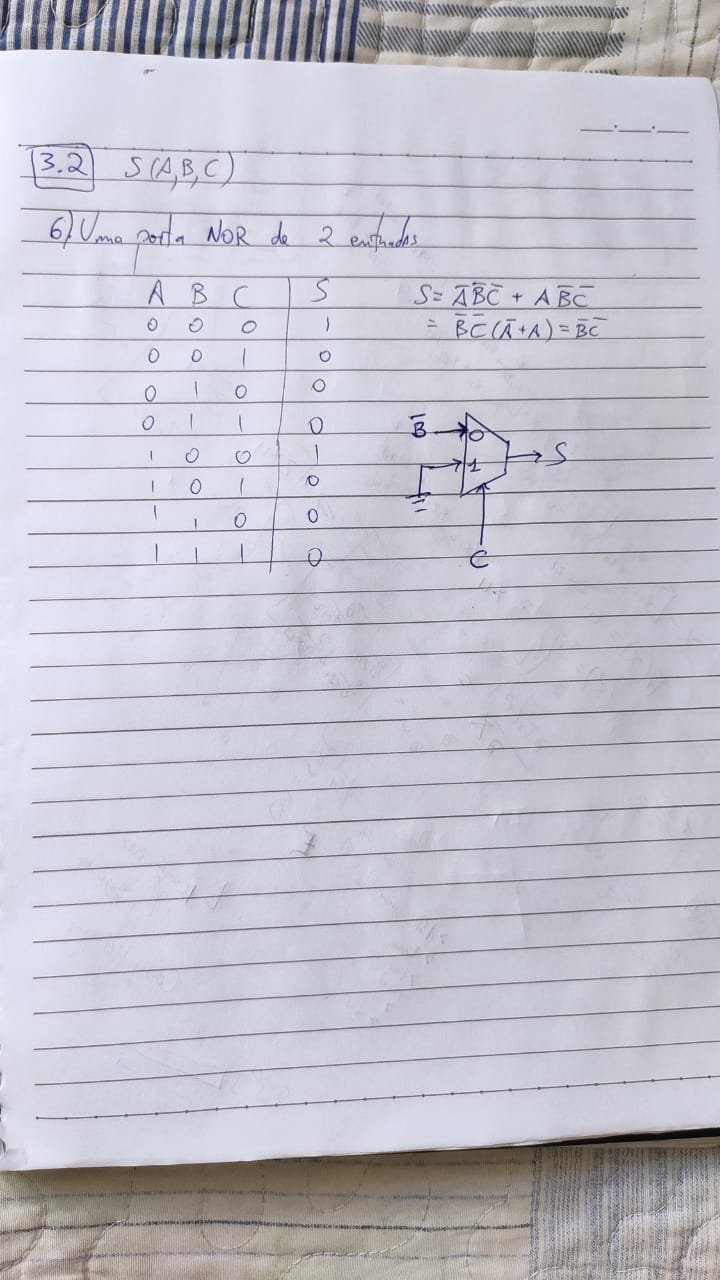 3.2 S(A,B,C)
6) Uma porta NOR de 2 entradas
A B C | S
0 0 0 | 1
0 0 1 | 0
0 1 0 | 0
0 1 1 | 0
1 0 0 | 1
1 0 1 | 0
1 1 0 | 0
1 1 1 | 0
S= A̅B̅C̅ + AB̅C̅
= B̅C̅(A̅+A) = B̅C̅
B̅ 0
1 S
C